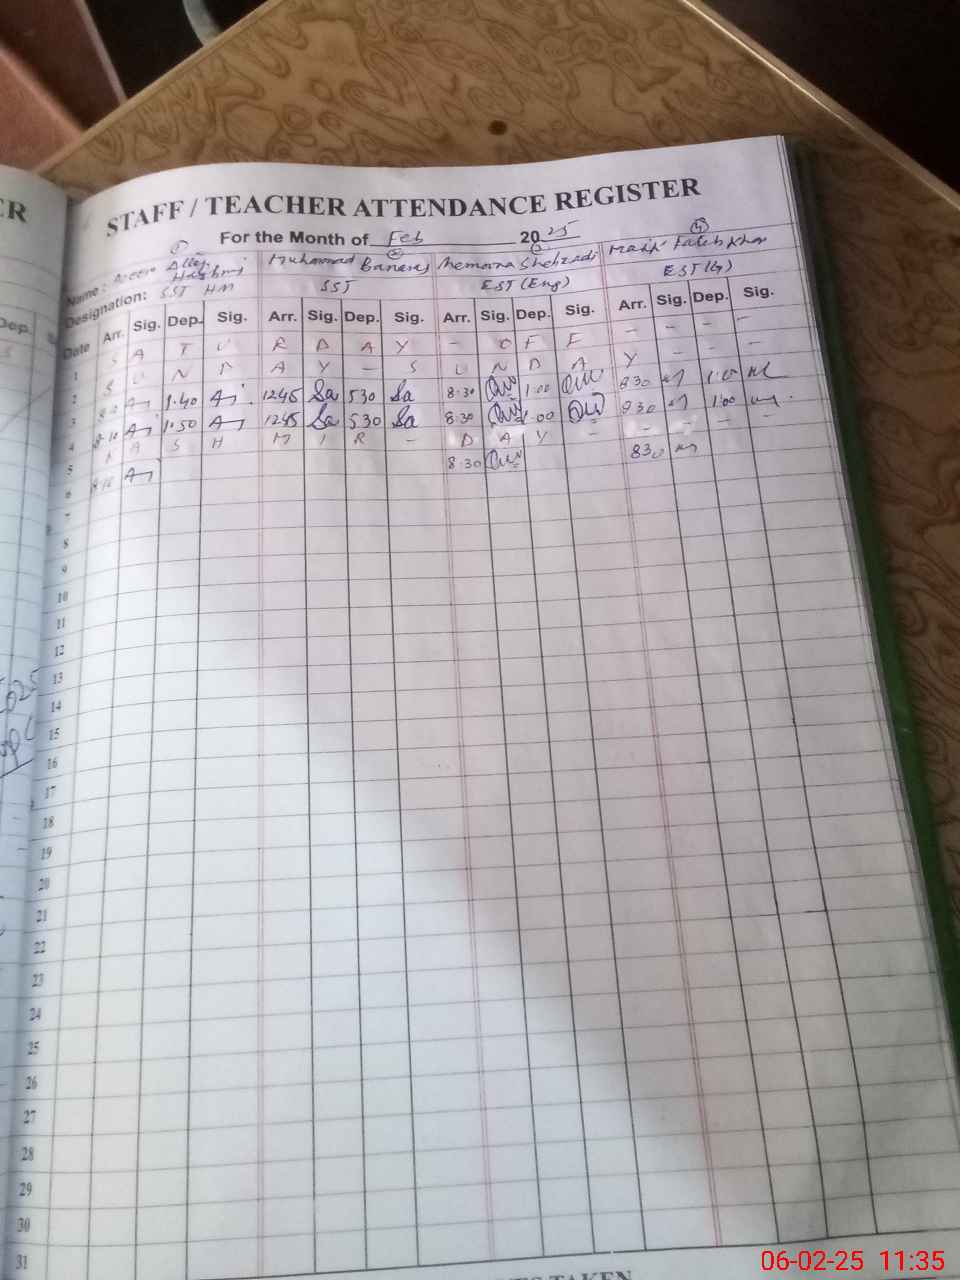 ER
STAFF / TEACHER ATTENDANCE REGISTER
For the Month of Feb 2025
1 2 3 4
Name : Hashmi Muhammad Banaras Memoona Shehzadi Malik Fateh Khan
Designation: SST HM SST EST (Eng) EST (G)
Dep.
Date Arr. Sig. Dep. Sig. Arr. Sig. Dep. Sig. Arr. Sig. Dep. Sig. Arr. Sig. Dep. Sig.
1 S A T U R D A Y - O F F - - - -
2 S U N D A Y - S U N D A Y - - -
3 1.40 1245 Sa 530 Sa 8.30 1.00 830
4 8.10 1.50 1245 Sa 530 Sa 8.30 1.00 830 1.00
5 K A S H M I R - D A Y - - - - -
6 8.30 830
7
8
9
10
11
12
13
14
15
16
17
18
19
20
21
22
23
24
25
26
27
28
29
30
31
TAKEN
06-02-25 11:35